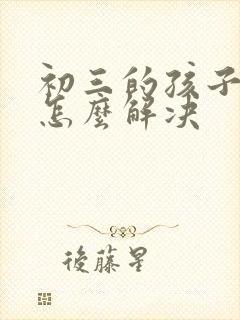 初三的孩子
怎麼解决
後藤星